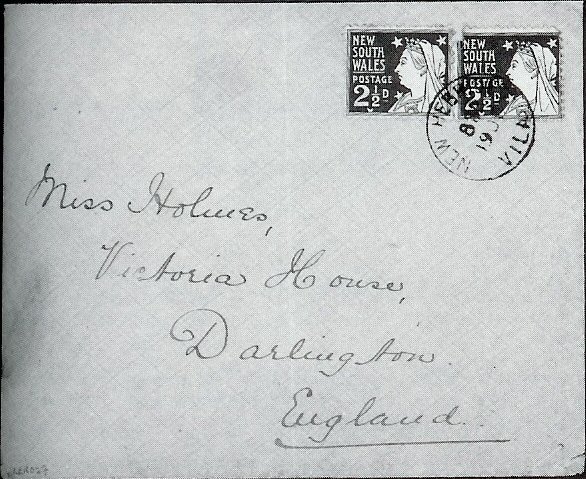 NEW
SOUTH
WALES
POSTAGE
2½D
NEW
SOUTH
WALES
POSTAGE
2½D
NEW
VILA
Miss Holmes,
Victoria House,
Darlington
England